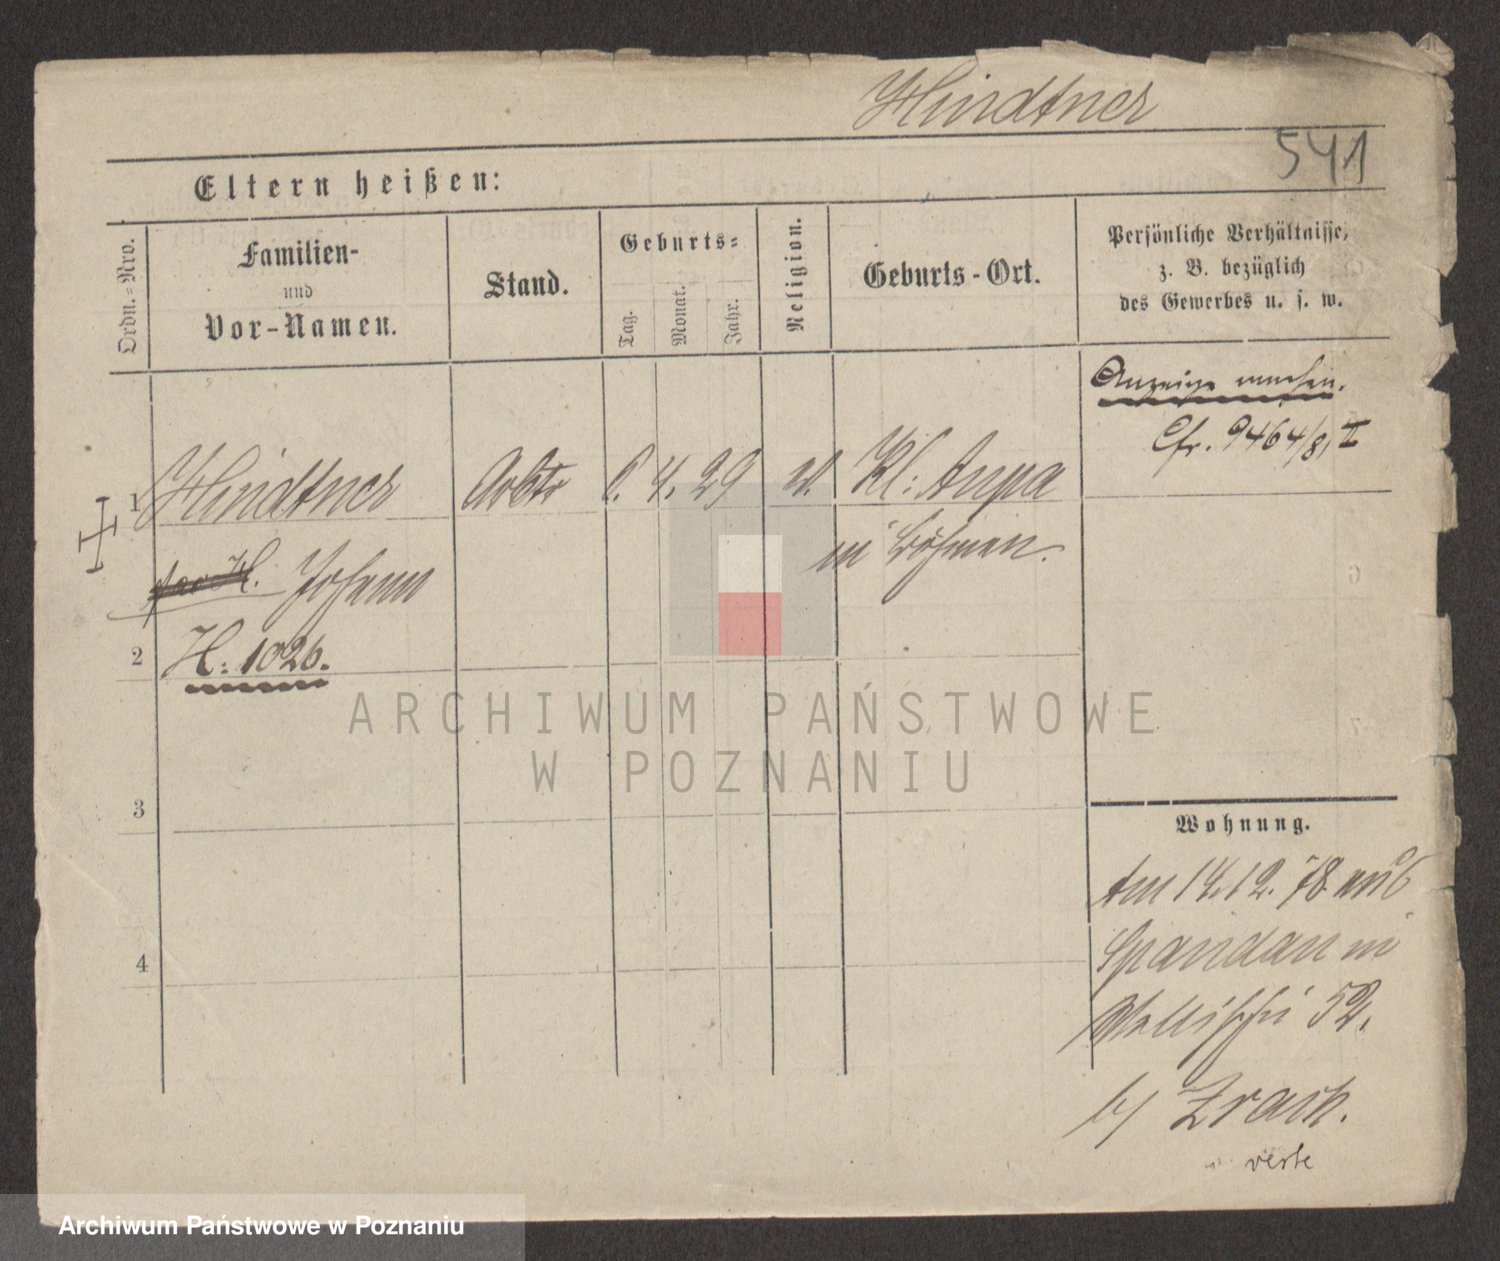 Hindtner
541
Eltern heißen:
Ordn.=Nro.
Familien-
und
Vor-Namen.
Stand.
Geburts=
Tag.
Monat.
Jahr.
Religion.
Geburts-Ort.
Persönliche Verhältnisse,
z. B. bezüglich
des Gewerbes u. s. w.
Anzeige machen.
Cfr. 9464/81 I
1 Hindtner Arbtr 6. 4. 29 Kl: Aupa
Johann in Böhmen.
2 H: 1026.
3
4
Wohnung.
Am 14.12.78 aus
Spandau in
Wallischei 52.
b/
verte
ARCHIWUM PAŃSTWOWE
W POZNANIU
Archiwum Państwowe w Poznaniu